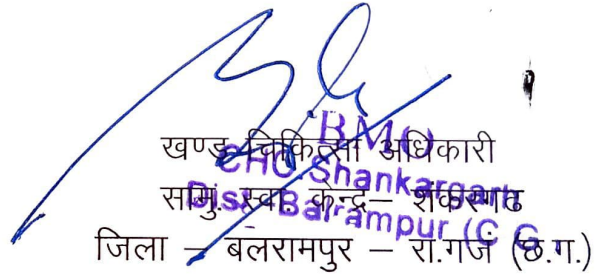 खण्ड चिकित्सा अधिकारी
सामु. स्वा. केन्द्र– शंकरगढ
जिला – बलरामपुर – रा.गंज (छ.ग.)
BMO
CHC Shankargarh
Dist. Balrampur (C.G.